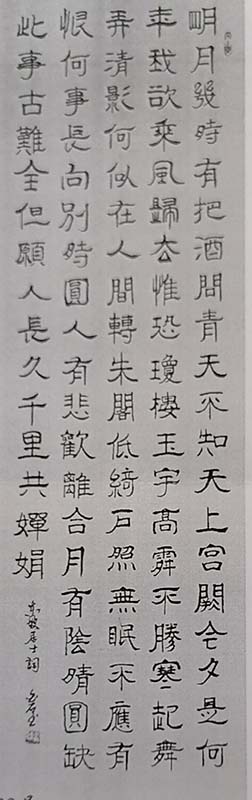 明月幾時有把酒問青天不知天上宮闕今夕是何
年我欲乘風歸去惟恐瓊樓玉宇高處不勝寒起舞
弄清影何似在人間轉朱閣低綺戶照無眠不應有
恨何事長向別時圓人有悲歡離合月有陰晴圓缺
此事古難全但願人長久千里共嬋娟
東坡居士詞